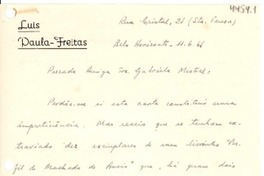 4459.1
Luis
Paula-Freitas
Rua Cristal, 28 (Sta. Teresa)
Belo Horizonte - 11.6.46
Prezada Amiga Da. Gabriela Mistral,
Perdôe-me si esta carta constitui uma
impertinência. Mas receio que se tenham ex-
traviado dez exemplares de meu livrinho "Per-
fil de Machado de Assis" que, há quasi dois